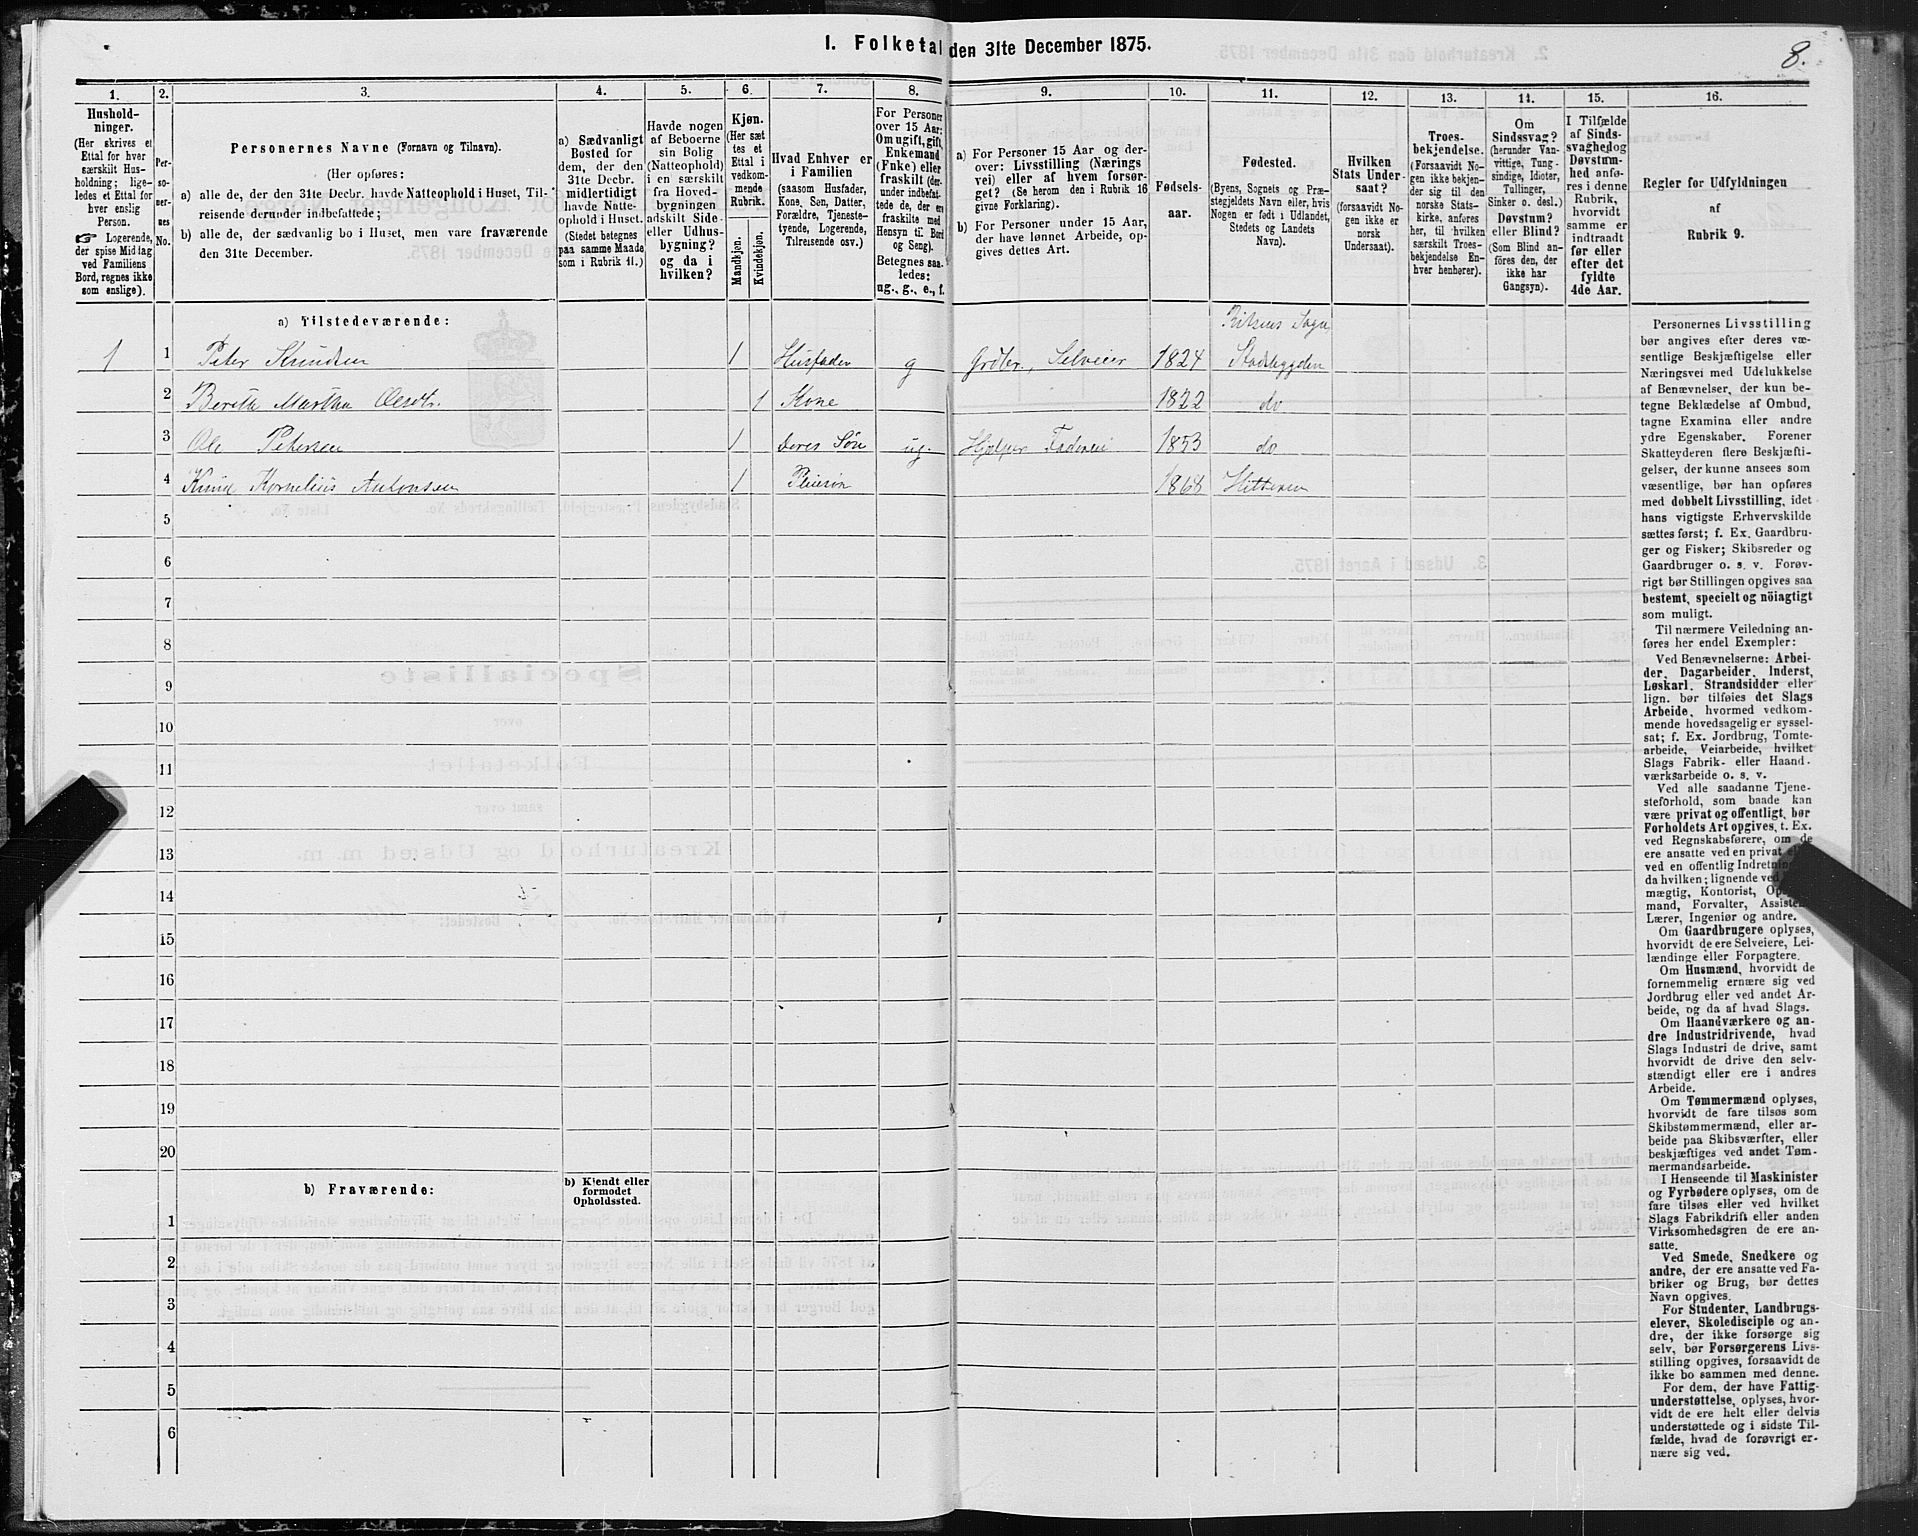 I. Folketal den 31te December 1875.
8.
1.
2.
3.
4.
5.
6.
7.
8.
9.
10.
11.
12.
13.
14.
15.
16.
Hushold-
ninger.
(Her skrives et
Ettal for hver
særskilt Hus-
holdning; lige-
ledes et Ettal for
hver enslig
Person.
☞ Logerende,
der spise Middag
ved Familiens
Bord, regnes ikke
som enslige).
Per-
so-
ner-
nes
No.
Personernes Navne (Fornavn og Tilnavn).
(Her opføres:
a) alle de, der den 31te Decbr. havde Natteophold i Huset, Til-
reisende derunder indbefattede;
b) alle de, der sædvanlig bo i Huset, men vare fraværende
den 31te December.
a) Sædvanligt
Bosted for
dem, der den
31te Decbr.
midlertidigt
havde Natte-
ophold i Huset.
(Stedet betegnes
paa samme Maade
som i Rubrik 11.)
Havde nogen
af Beboerne
sin Bolig
(Natteophold)
i en særskilt
fra Hoved-
bygningen
adskilt Side-
eller Udhus-
bygning?
og da i
hvilken?
Kjøn.
(Her sæt
tes et
Ettal i
vedkom-
mende
Rubrik.
Mandkjøn.
Kvindekjøn.
Hvad Enhver er
i Familien
(saasom Husfader,
Kone, Søn, Datter,
Forældre, Tjeneste-
tyende, Logerende,
Tilreisende osv.)
For Personer
over 15 Aar:
Om ugift, gift,
Enkemand
(Enke) eller
fraskilt (der-
under indbefat-
tede de, der ere
fraskilte med
Hensyn til Bord
og Seng).
Betegnes saa-
ledes:
ug., g., e., f.
a) For Personer 15 Aar og der-
over: Livsstilling (Nærings
vei) eller af hvem forsør-
get? (Se herom den i Rubrik 16
givne Forklaring).
b) For Personer under 15 Aar,
der have lønnet Arbeide, op-
gives dettes Art.
Fødsels-
aar.
Fødested.
(Byens, Sognets og Præ-
stegjeldets Navn eller, hvis
Nogen er født i Udlandet,
Stedets og Landets
Navn).
Hvilken
Stats Under-
saat?
(forsaavidt No-
gen ikke er
norsk
Undersaat).
Troes-
bekjendelse.
(Forsaavidt No-
gen ikke bekjen-
der sig til den
norske Stats-
kirke, anføres
her, til hvilken
særskilt Troes-
bekjendelse En-
hver henhører).
Om
Sindssvag?
(herunder Van-
vittige, Tung-
sindige, Idioter,
Tullinger,
Sinker o. desl.)
Døvstum?
eller Blind?
(Som Blind an-
føres den, der
ikke har
Gangsyn).
I Tilfælde
af Sinds-
svaghed og
Døvstum-
hed anfø-
res i denne
Rubrik,
hvorvidt
samme er
indtraadt
før eller
efter det
fyldte
4de Aar.
Regler for Udfyldningen
af
Rubrik 9.
a) Tilstedeværende:
Sogn
1 1 Peter Knudsen 1 Husfader g Selveier 1824 Stadsbygden
2 Berith Martha Olesdt. 1 Kone 1822 do
3 Ole Petersen 1 Deres Søn ug. Hjelper Faderen 1853 do
4 Knud Kornelius Antonsen 1 Pleiesøn 1868 Hitteren
5
6
7
8
9
10
11
12
13
14
15
16
17
18
19
20
b) Fraværende:
b) Kjendt eller
formodet
Opholdssted.
1
2
3
4
5
6
Personernes Livsstilling
bør angives efter deres væ-
sentlige Beskjæftigelse eller
Næringsvei med Udelukkelse
af Benævnelser, der kun be-
tegne Beklædelse af Ombud,
tagne Examina eller andre
ydre Egenskaber. Forener
Skatteyderen flere Beskjæfti-
gelser, der kunne ansees som
væsentlige, bør han opføres
med dobbelt Livsstilling, idet
hans vigtigste Erhvervskilde
sættes først; f. Ex. Gaardbru-
ger og Fisker; Skibsreder og
Gaardbruger o. s. v. Forøv-
rigt bør Stillingen opgives saa
bestemt, specielt og nöiagtigt
som muligt.
Til nærmere Veiledning an-
føres her endel Exempler:
Ved Benævnelserne: Arbei-
der, Dagarbeider, Inderst,
Løskarl, Strandsidder eller
lign. bør tilføies det Slags
Arbeide, hvormed vedkom-
mende hovedsagelig er syssel-
sat; f. Ex. Jordbrug, Tomte-
arbeide, Veiarbeide, hvilket
Slags Fabrik- eller Haand-
værksarbeide o. s. v.
Ved alle saadanne Tjene-
steforhold, som baade kan
være privat og offentligt, bør
Forholdets Art opgives, t. Ex.
ved Regnskabsførere, om de
ere ansatte ved en privat
ved en offentlig
da hvilken; lignende ved
mægtig, Kontorist,
mand, Forvalter,
Lærer, Ingeniør og andre.
Om Gaardbrugere oplyses,
hvorvidt de ere Selveiere, Lei-
lændinge eller Forpagtere.
Om Husmænd, hvorvidt de
fornemmelig ernære sig ved
Jordbrug eller ved andet Ar-
beide, og da af hvad Slags.
Om Haandværkere og an-
dre Industridrivende, hvad
Slags Industri de drive, samt
hvorvidt de drive den selv-
stændigt eller ere i andres
Arbeide.
Om Tømmermænd oplyses,
hvorvidt de fare tilsøs som
Skibstømmermænd, eller ar-
beide paa Skibsværfter, eller
beskjæftiges ved andet Tøm-
mermandsarbeide.
I Henseende til Maskinister
og Fyrbødere oplyses, om de
fare tilsøs eller ved hvilket
Slags Fabrikdrift eller anden
Virksomhedsgren de ere an-
satte.
Ved Smede, Snedkere og
andre, der ere ansatte ved Fa-
briker og Brug, bør dettes
Navn opgives.
For Studenter, Landbrugs-
elever, Skoledisciple og an-
dre, der ikke forsørge sig
selv, bør Forsørgerens Livs-
stilling opgives, forsaavidt de
ikke bo sammen med denne.
For dem, der have Fattig-
understøttelse, oplyses, hvor-
vidt de ere helt eller delvis
understøttede og i sidste Til-
fælde, hvad de forøvrigt er-
nære sig ved.